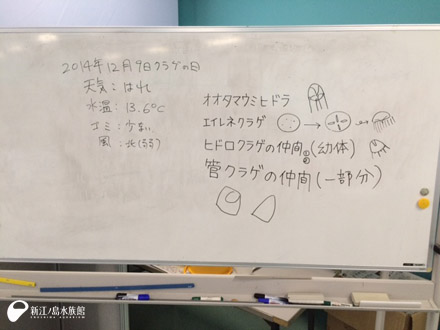 2014年12月9日クラゲの日
天気：はれ
水温：13.6℃
ゴミ：少ない
風：北(弱)
オオタマウミヒドラ
エイレネクラゲ
ヒドロクラゲの仲間(幼体)
管クラゲの仲間(一部分)
新江ノ島水族館
ENOSHIMA AQUARIUM